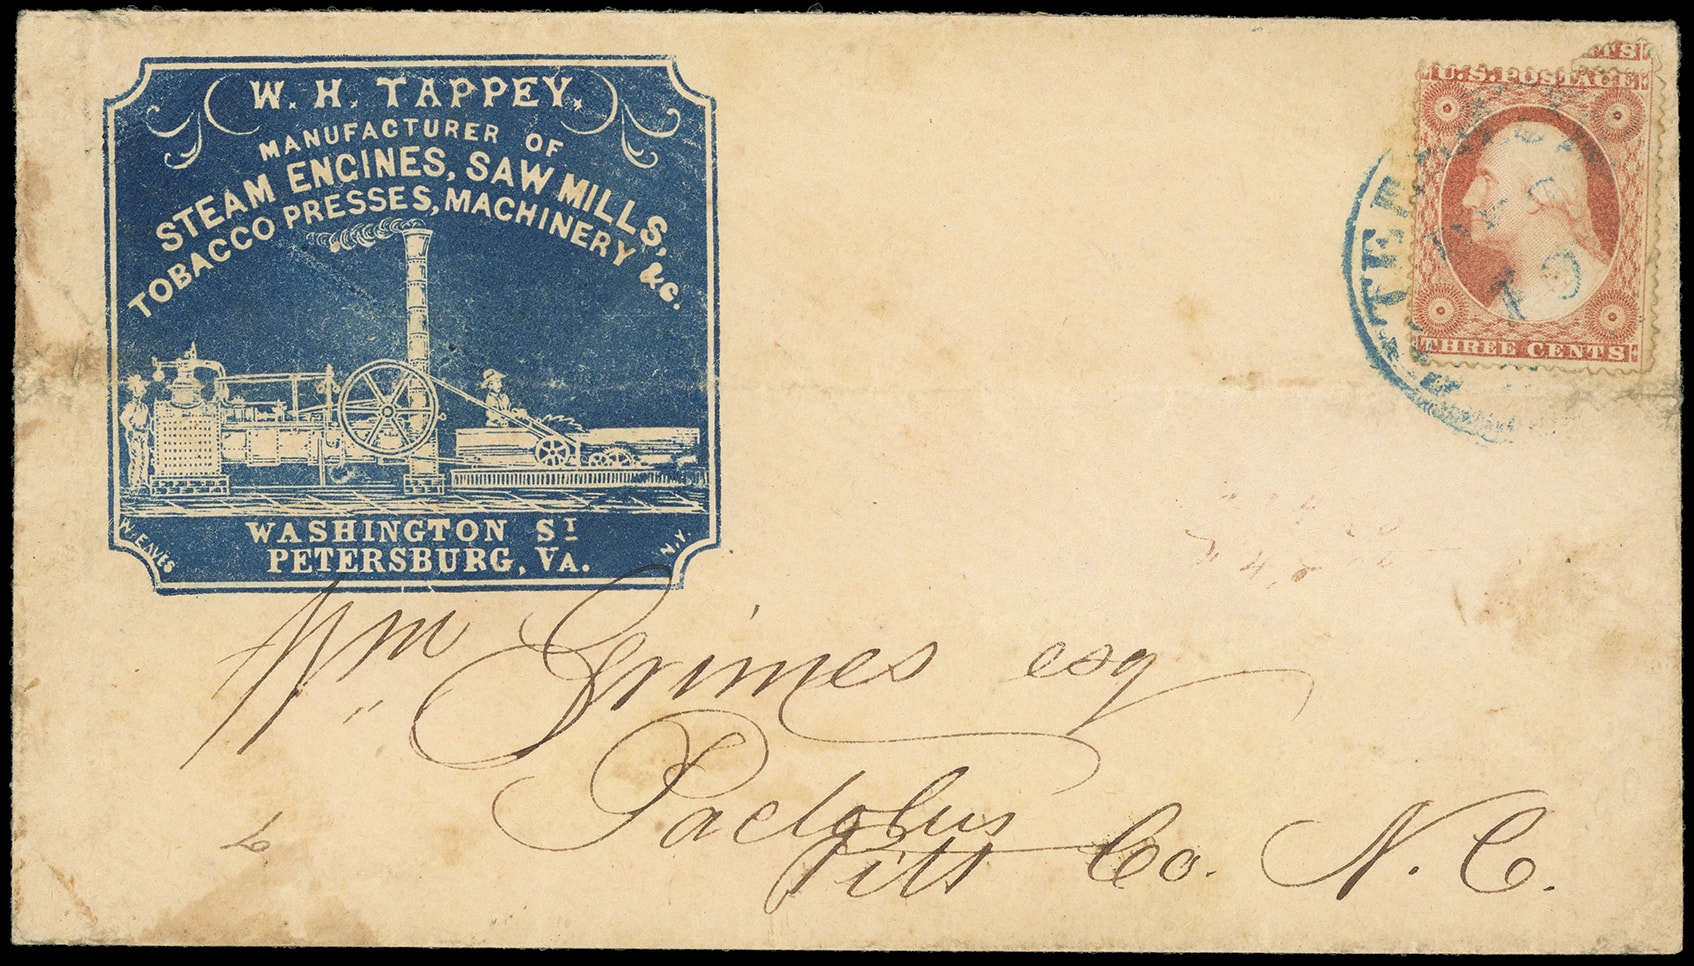 W. H. TAPPEY,
MANUFACTURER OF
STEAM ENGINES, SAW MILLS,
TOBACCO PRESSES, MACHINERY &c.
WASHINGTON ST
PETERSBURG, VA.
W. EAVES
N.Y.
U.S. POSTAGE
THREE CENTS
Wm Grimes esq
Pactolus
Pitt Co. N. C.